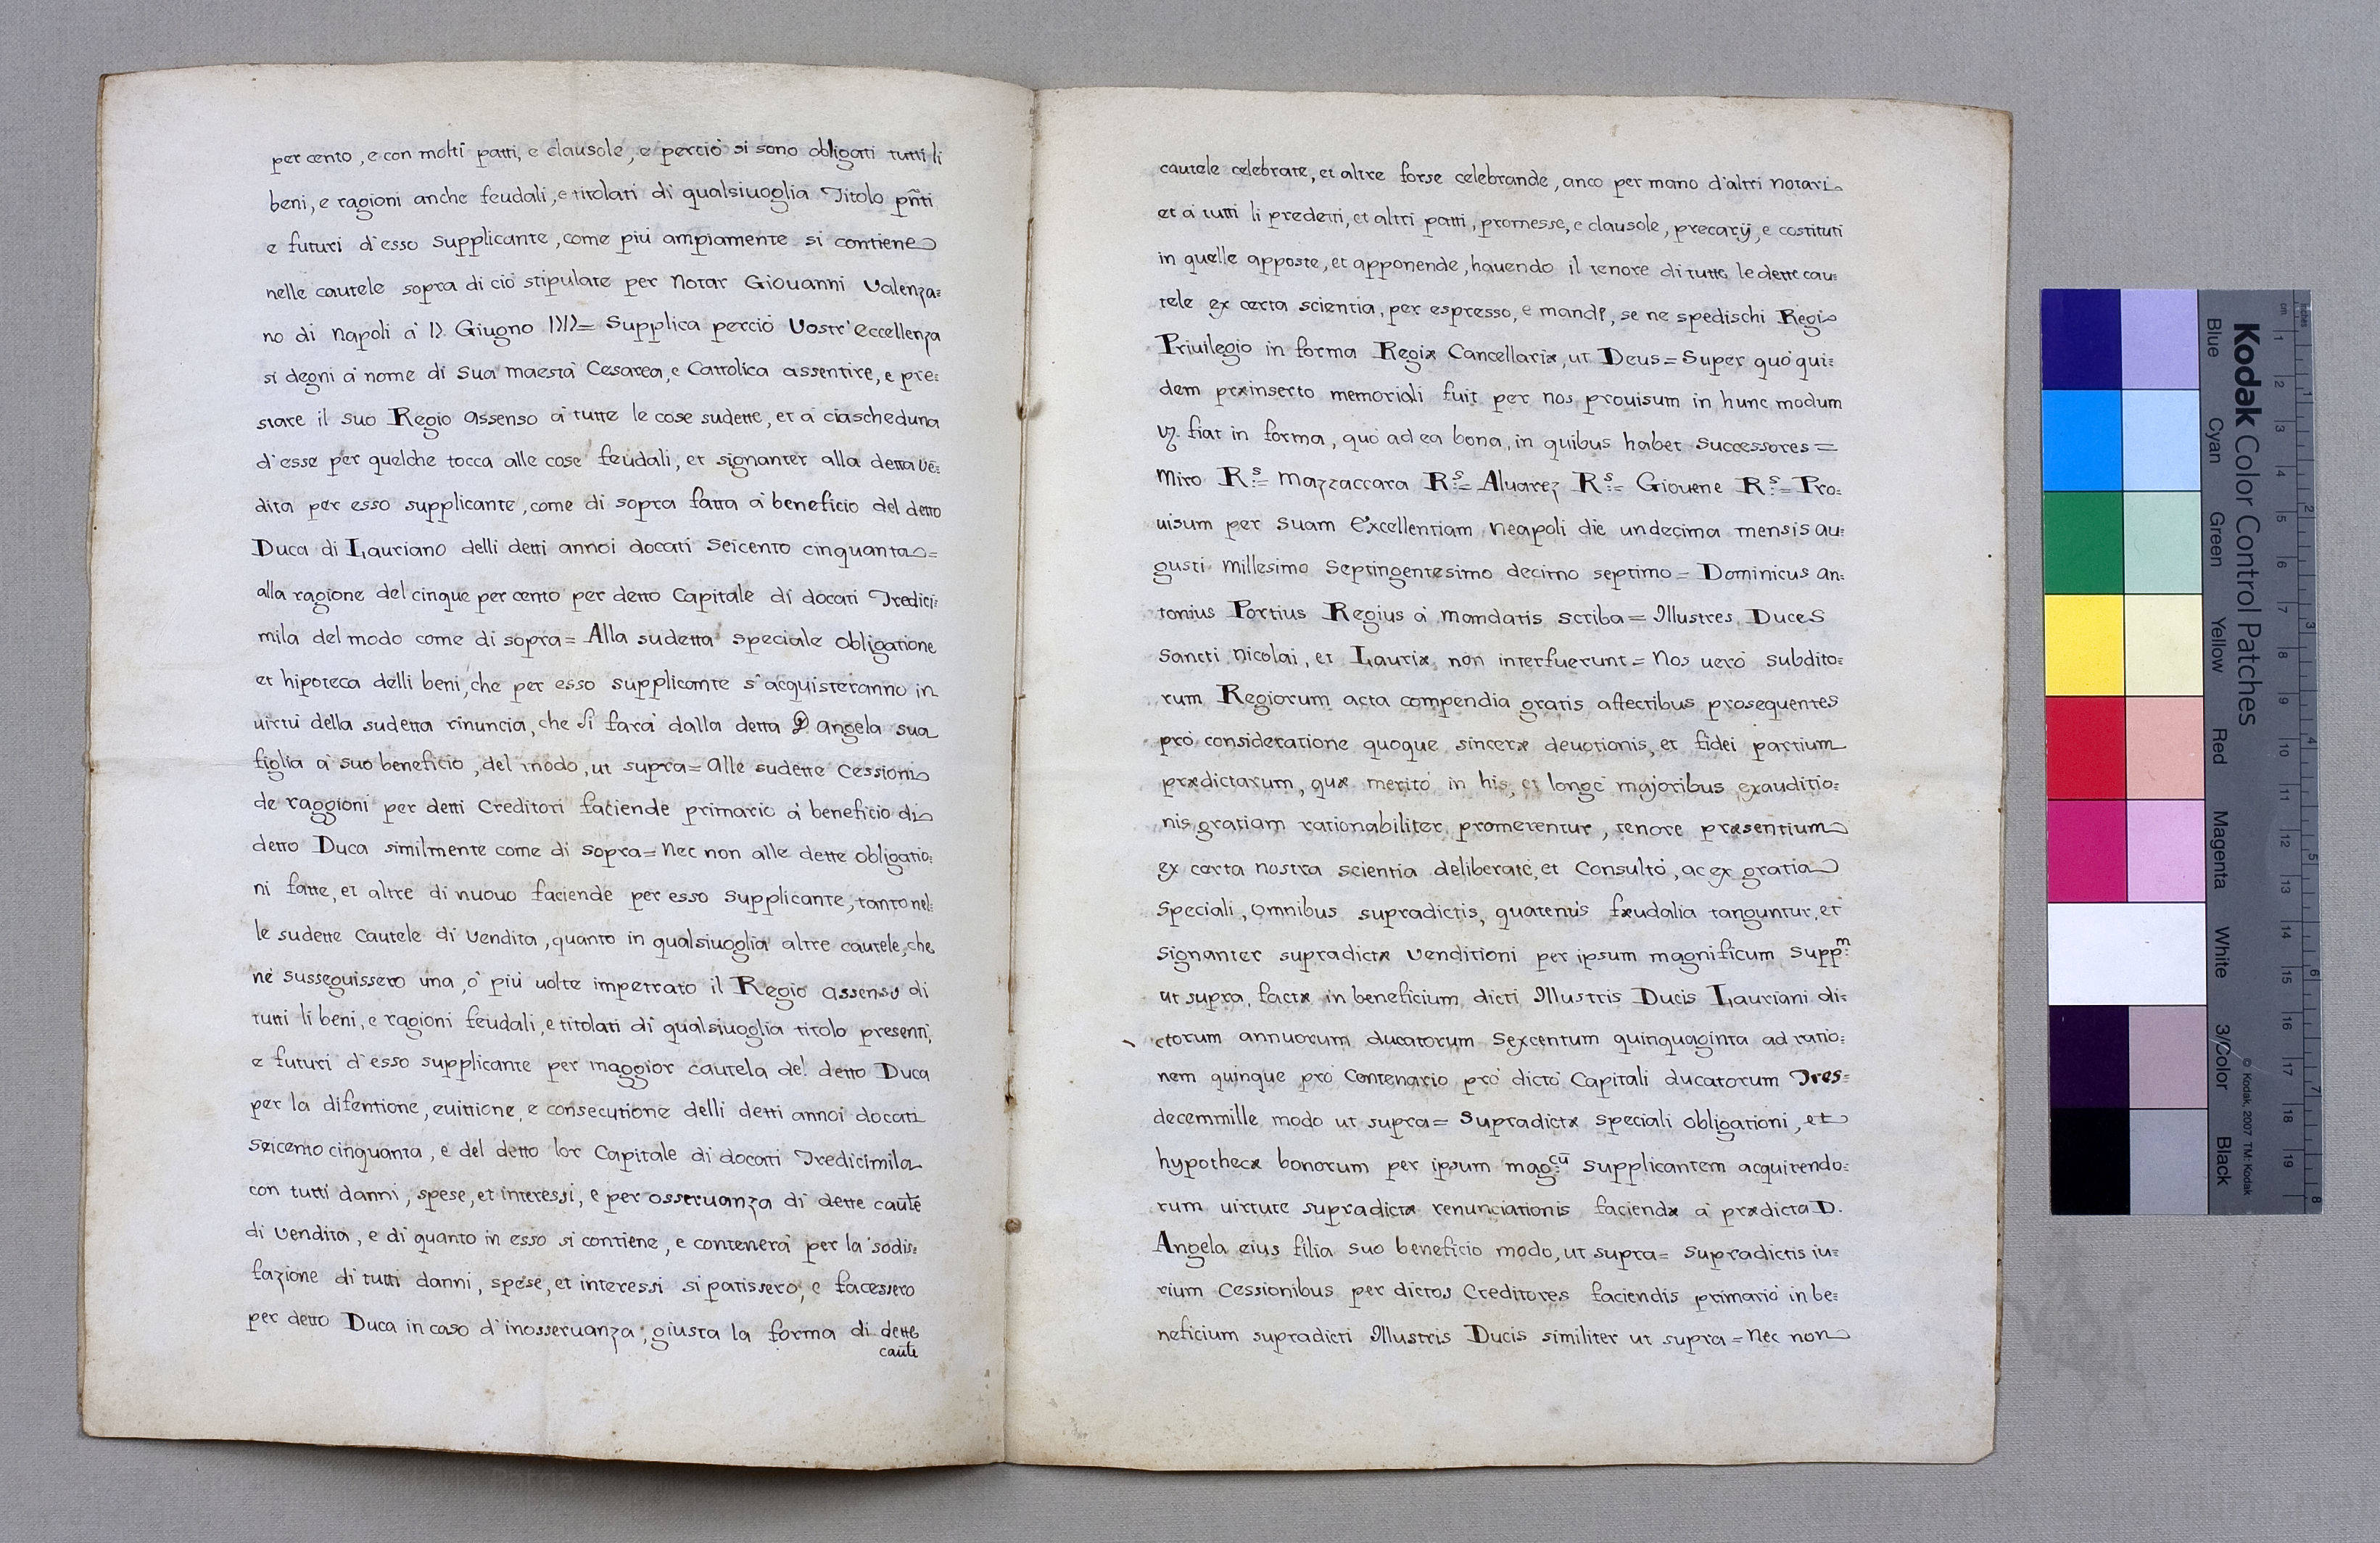 per cento, e con molti patti, e clausole, e perciò si sono obligati tutti li
beni, e ragioni anche feudali, e titolati di qualsiuoglia Titolo pñti
e futuri d'esso supplicante, come più ampiamente si contiene
nelle cautele sopra di ciò stipulate per Notar Giouanni Valenza=
no di Napoli à Giugno = Supplica perciò Vostr'eccellenza
si degni à nome di Sua Maestà Cesarea, e Cattolica assentire, e pre=
stare il suo Regio Assenso à tutte le cose sudette, et à ciascheduna
d'esse per quelche tocca alle cose feudali, et signanter alla detta ve=
dita per esso supplicante, come di sopra fatta à beneficio del detto
Duca di Lauriano delli detti annoi docati Seicento cinquanta=
alla ragione del cinque per cento per detto Capitale di docati Tredici=
mila del modo come di sopra= Alla sudetta speciale obligatione
et hipoteca delli beni, che per esso supplicante s'acquisteranno in
uirtù della sudetta rinuncia, che si farà dalla detta D Angela sua
figlia à suo beneficio, del modo, ut supra= Alle sudette Cessioni
de raggioni per detti Creditori faciende primario à beneficio di
detto Duca similmente come di sopra= Nec non alle dette obligatio=
ni fatte, et altre di nuouo faciende per esso Supplicante, tanto nel=
le sudette Cautele di Vendita, quanto in qualsiuoglia altre cautele, che
nè susseguissero una, ò più uolte impetrato il Regio assenso di
tutti li beni, e ragioni feudali, e titolati di qualsiuoglia titolo presenti,
e futuri d'esso supplicante per maggior cautela del detto Duca
per la difentione, euittione, e consecutione delli detti annoi docati
Seicento cinquanta, e del detto lor Capitale di docati Tredicimila
con tutti danni, spese, et interessi, e per osseruanza di dette caut̃e
di Vendita, e di quanto in esso si contiene, e contenerà per la sodis=
fazione di tutti danni, spese, et interessi si patissero, e facessero
per detto Duca in caso d'inosseruanza, giusta la forma di dette
caut̃e
cautele celebrate, et altre forse celebrande, anco per mano d'altri Notari
et à tutti li predetti, et altri patti, promesse, e clausole, precarÿ, e costituti
in quelle apposte, et apponende, hauendo il tenore di tutte le dette cau=
tele ex certa scientia, per espresso, e mandi, se ne spedischi Regio
Priuilegio in forma Regiæ Cancellariæ, ut Deus= Super quò qui=
dem præinserto memoriali fuit per nos prouisum in hunc modum
vz. fiat in forma, quò ad ea bona, in quibus habet Successores=
Miro R.s= Mazzaccara R.s= Aluarez R.s= Giouene R.s= Pro=
uisum per Suam Excellentiam Neapoli die undecima mensis Au=
gusti Millesimo Septingentesimo decimo septimo= Dominicus An=
tonius Portius Regius à mandatis scriba= Illustres Duces
Sancti Nicolai, et Lauriæ non interfuerunt= Nos uerò subdito=
rum Regiorum acta compendia gratis affectibus prosequentes
prò consideratione quoque sinceræ deuotionis, et fidei partium
prædictarum, quæ meritò in his, et longè majoribus exauditio=
nis gratiam rationabiliter promerentur, tenore præsentium
ex certa nostra scientia deliberatè, et Consultò, ac ex gratia
Speciali, omnibus supradictis, quatenùs fæudalia tanguntur, et
Signanter supradictæ Venditioni per ipsum magnificum Supp.m
ut supra, factæ in beneficium dicti Illustris Ducis Lauriani di=
ctorum annuorum ducatorum Sexcentum quinquaginta ad ratio=
nem quinque prò Centenario prò dictò Capitali ducatorum Tres=
decemmille modo ut supra= Supradictæ speciali obligationi, et
hypothecæ bonorum per ipsum mag.cũ supplicantem acquirendo=
rum uirtute supradictæ renunciationis faciendæ à prædicta D.
Angela eius filia suo beneficio modo, ut supra= Supradictis iu=
rium Cessionibus per dictos Creditores faciendis primariò in be=
neficium supradicti Illustris Ducis similiter ut supra= Nec non
Kodak Color Control Patches
Blue Cyan Green Yellow Red Magenta White 3/Color Black
© Kodak, 2007 TM: Kodak